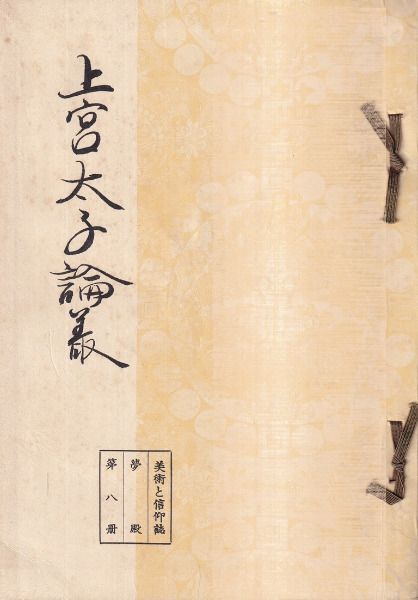 上宮太子論叢
美術と信仰誌
夢殿
第八冊